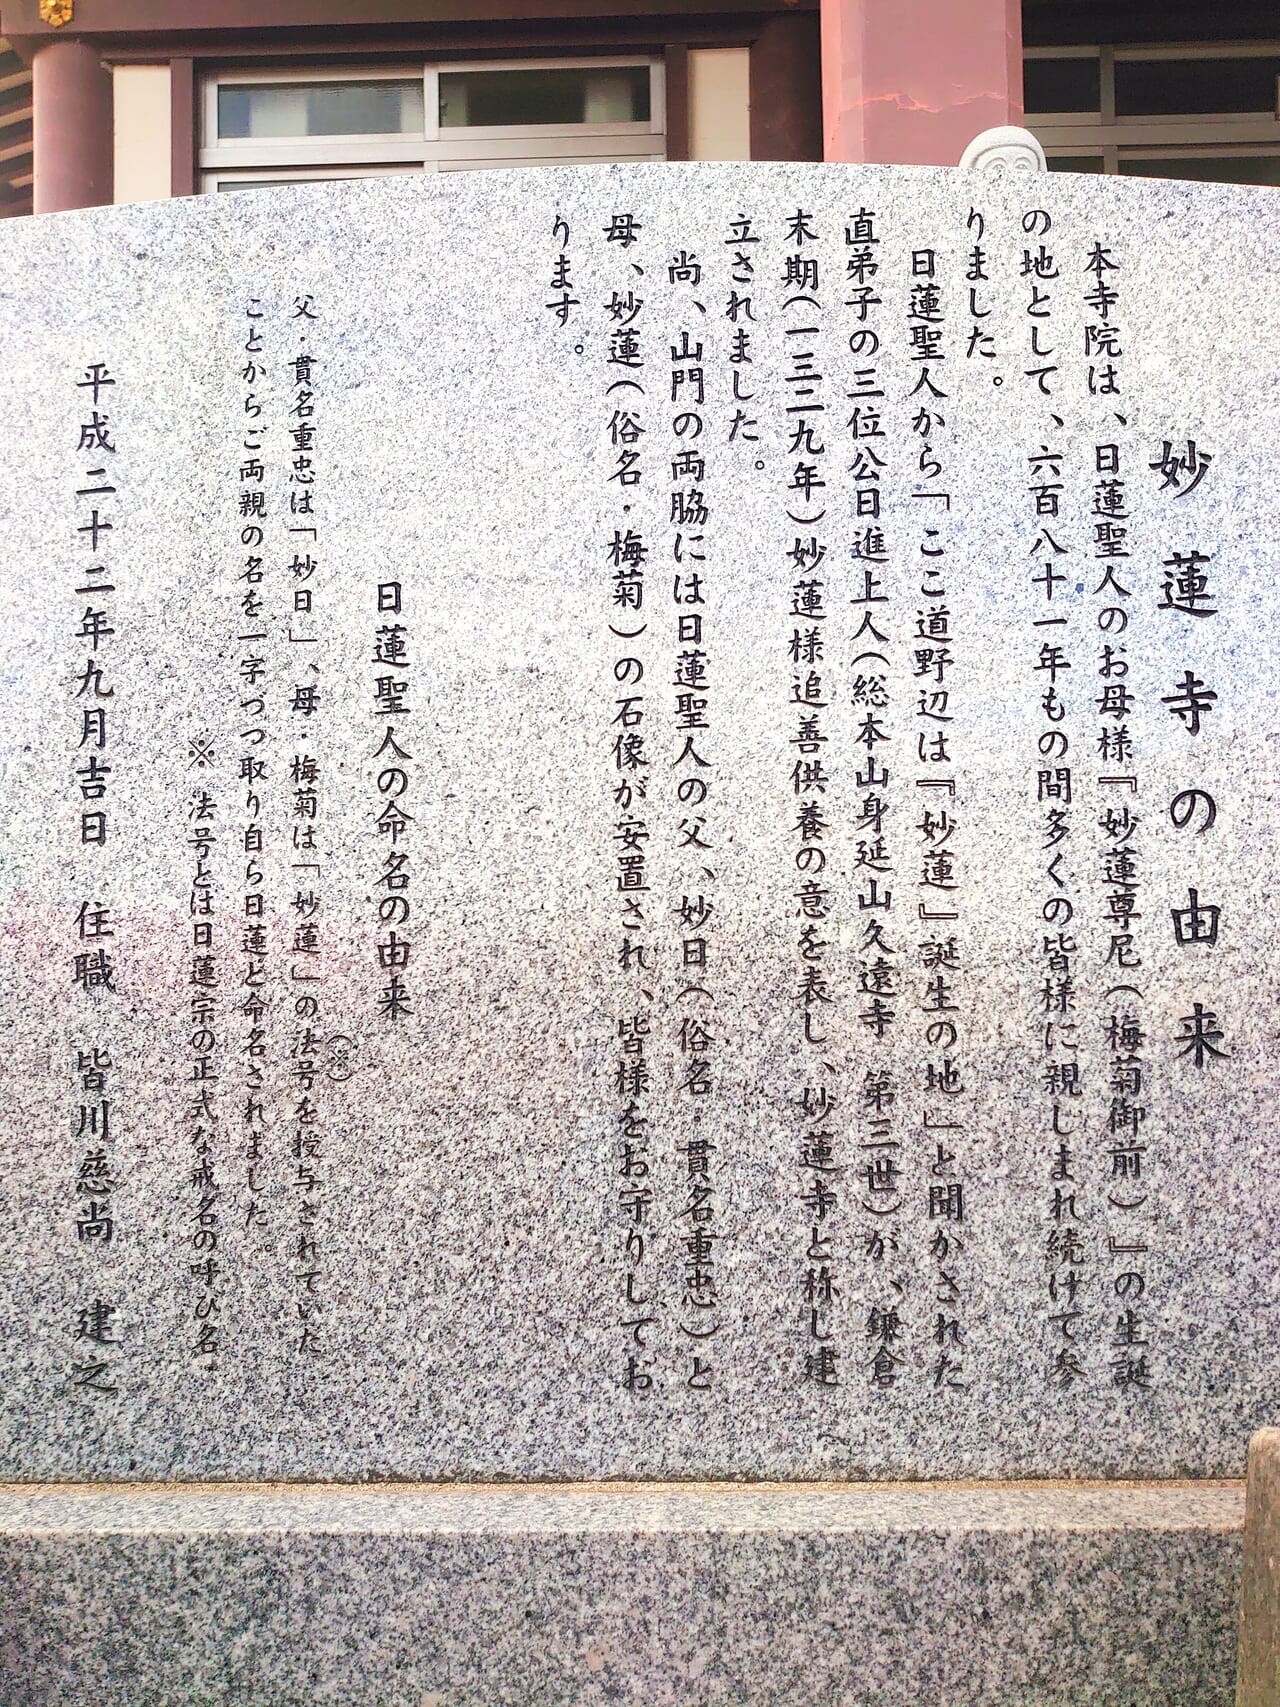 妙蓮寺の由来
本寺院は、日蓮聖人のお母様『妙蓮尊尼(梅菊御前)』の生誕
の地として、六百八十一年もの間多くの皆様に親しまれ続けて参
りました。
日蓮聖人から「ここ道野辺は『妙蓮』誕生の地」と聞かされた
直弟子の三位公日進上人(総本山身延山久遠寺 第三世)が、鎌倉
末期(一三二九年)妙蓮様追善供養の意を表し、妙蓮寺と称し建
立されました。
尚、山門の両脇には日蓮聖人の父、妙日(俗名・貫名重忠)と
母、妙蓮(俗名・梅菊)の石像が安置され、皆様をお守りしてお
ります。
日蓮聖人の命名の由来
(※)
父・貫名重忠は「妙日」、母・梅菊は「妙蓮」の法号を授与されていた
ことからご両親の名を一字づつ取り自ら日蓮と命名されました。
※ 法号とは日蓮宗の正式な戒名の呼び名。
平成二十二年九月吉日 住職 皆川慈尚 建之